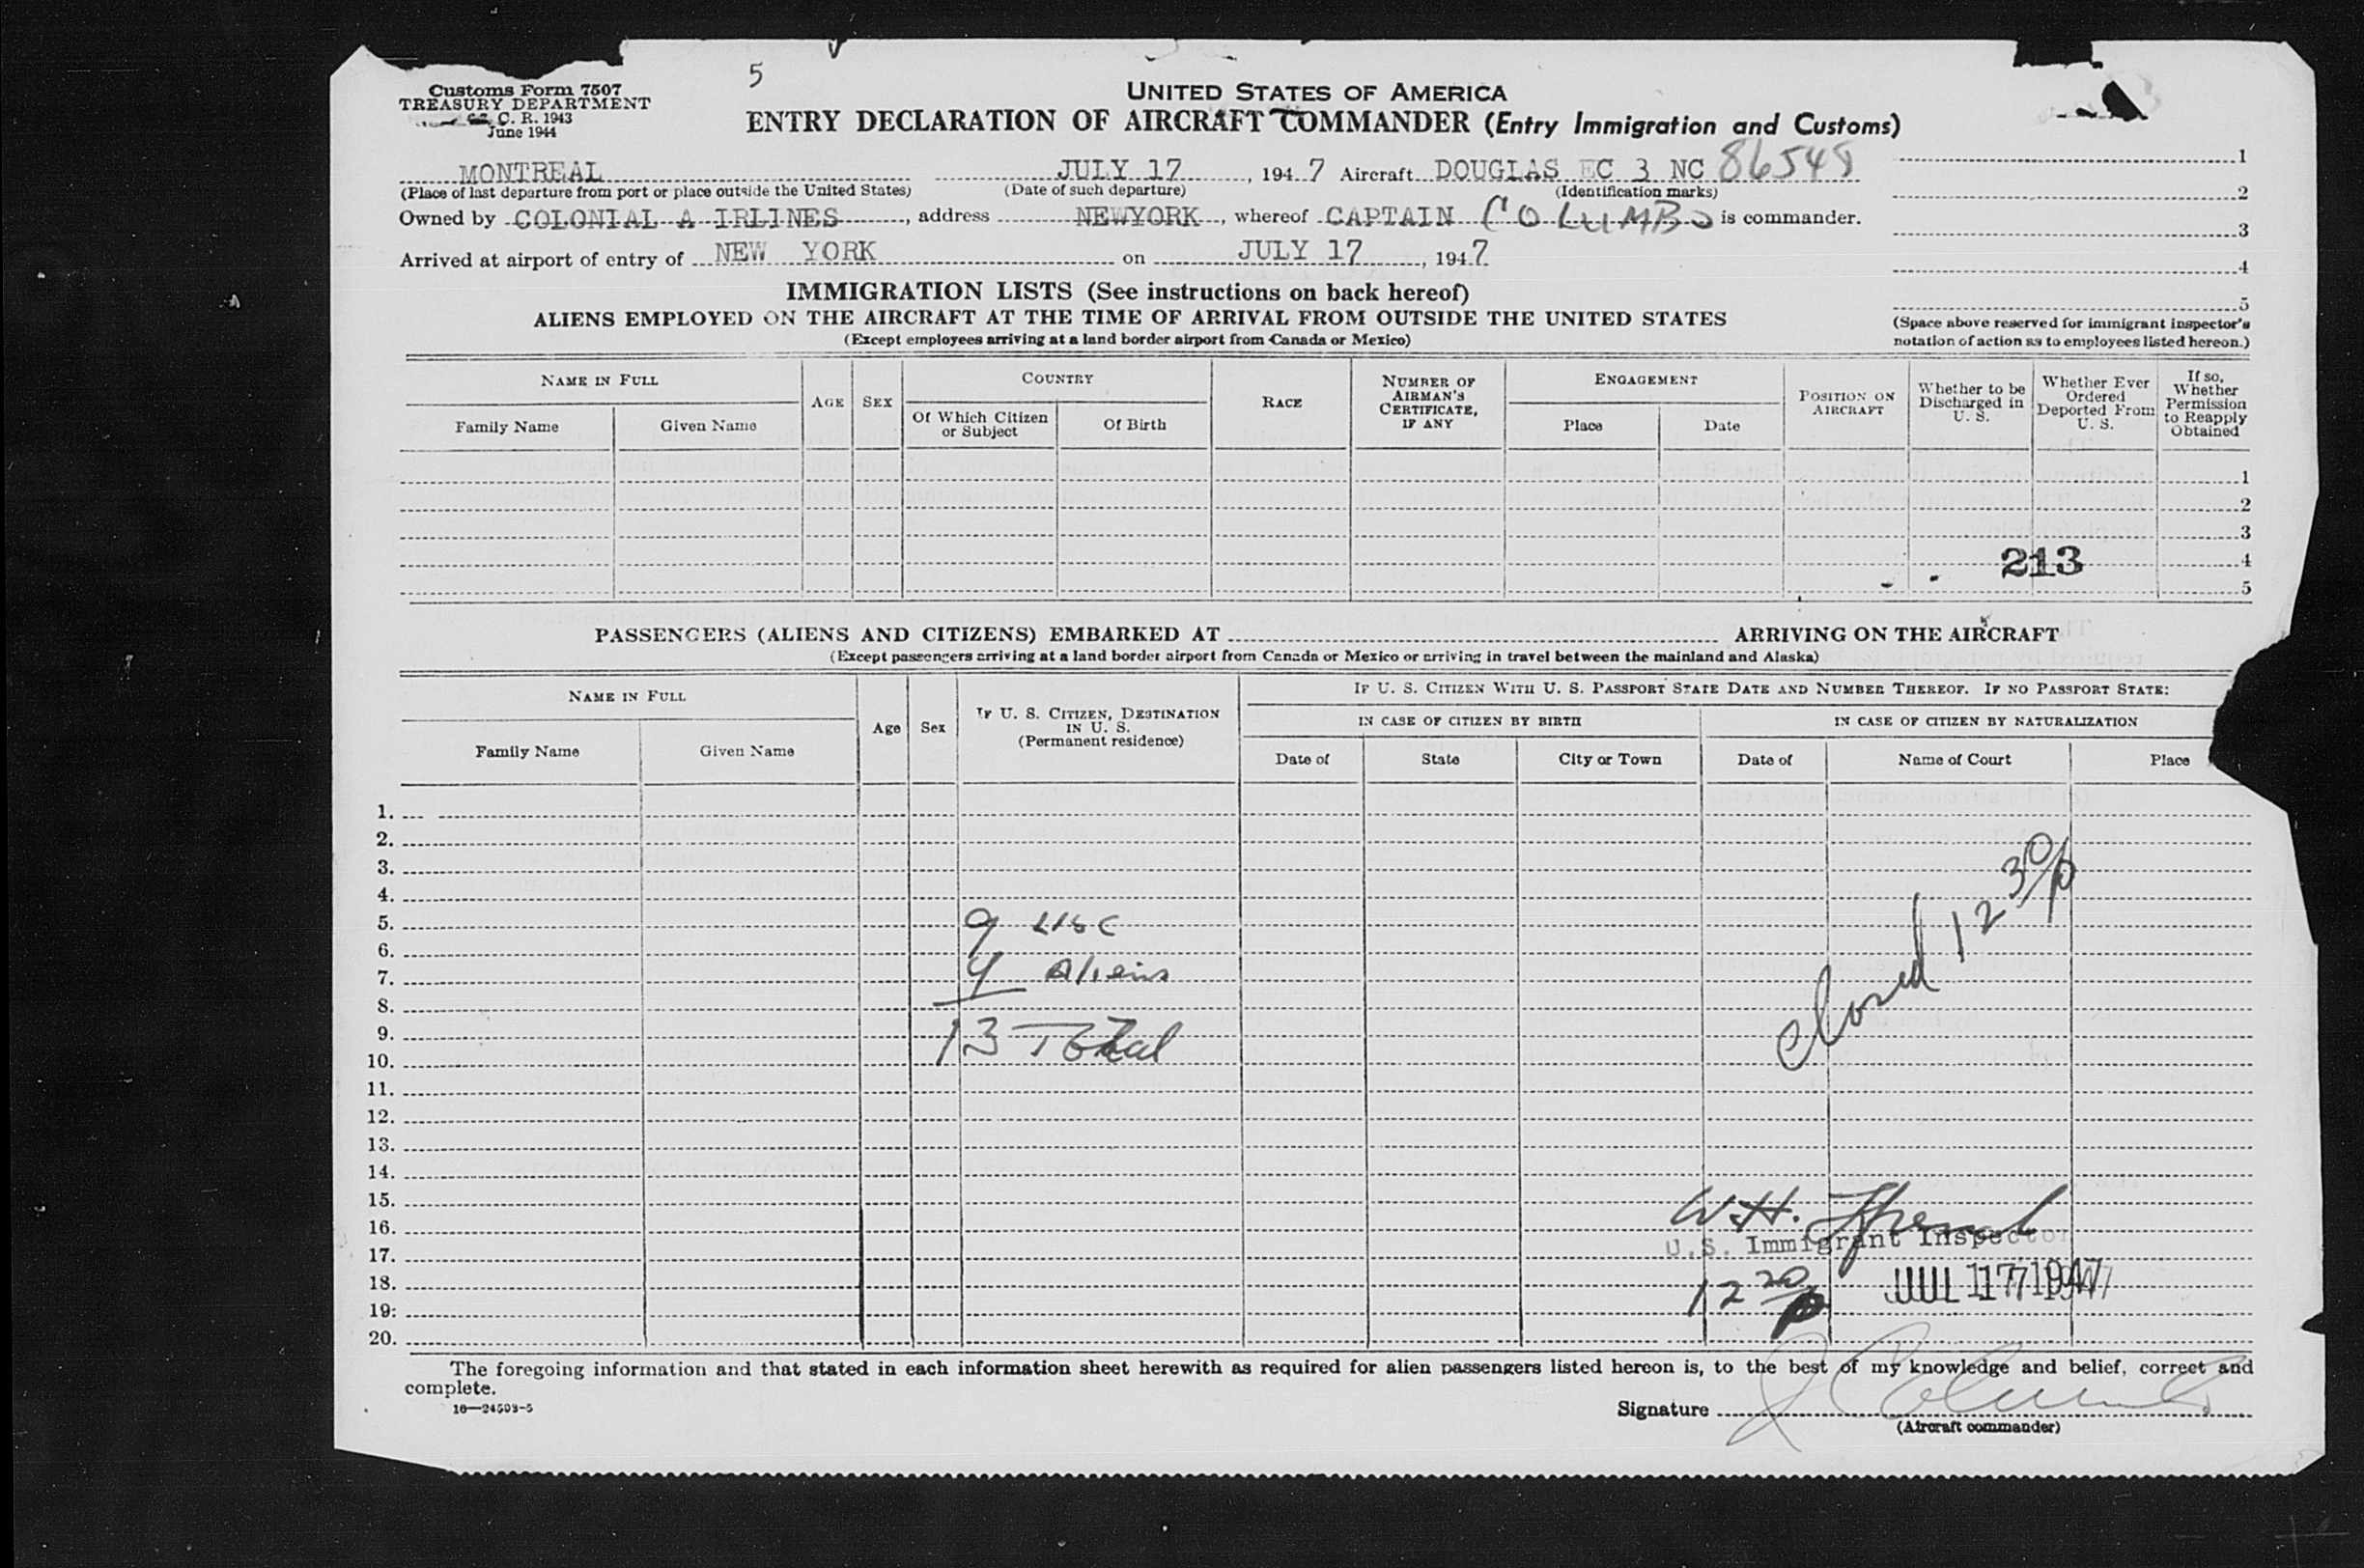 5
Customs Form 7507
TREASURY DEPARTMENT
C. R. 1943
June 1944
UNITED STATES OF AMERICA
ENTRY DECLARATION OF AIRCRAFT COMMANDER (Entry Immigration and Customs)
MONTREAL JULY 17, 1947 Aircraft DOUGLAS EC 3 NC 86548
(Place of last departure from port or place outside the United States) (Date of such departure) (Identification marks)
Owned by COLONIAL A IRLINES, address NEWYORK, whereof CAPTAIN COLUMBO is commander.
Arrived at airport of entry of NEW YORK on JULY 17, 1947
1
2
3
4
5
(Space above reserved for immigrant inspector's
notation of action as to employees listed hereon.)
IMMIGRATION LISTS (See instructions on back hereof)
ALIENS EMPLOYED ON THE AIRCRAFT AT THE TIME OF ARRIVAL FROM OUTSIDE THE UNITED STATES
(Except employees arriving at a land border airport from Canada or Mexico)
NAME IN FULL
Family Name Given Name
AGE
SEX
COUNTRY
Of Which Citizen or Subject
Of Birth
RACE
NUMBER OF AIRMAN'S CERTIFICATE, IF ANY
ENGAGEMENT
Place Date
POSITION ON AIRCRAFT
Whether to be Discharged in U. S.
Whether Ever Ordered Deported From U. S.
If so, Whether Permission to Reapply Obtained
1
2
3
213 4
5
PASSENGERS (ALIENS AND CITIZENS) EMBARKED AT ARRIVING ON THE AIRCRAFT
(Except passengers arriving at a land border airport from Canada or Mexico or arriving in travel between the mainland and Alaska)
NAME IN FULL
Family Name Given Name
Age
Sex
IF U. S. CITIZEN, DESTINATION IN U. S.
(Permanent residence)
IF U. S. CITIZEN WITH U. S. PASSPORT STATE DATE AND NUMBER THEREOF. IF NO PASSPORT STATE:
IN CASE OF CITIZEN BY BIRTH
Date of State City or Town
IN CASE OF CITIZEN BY NATURALIZATION
Date of Name of Court Place
1.
2.
3.
4.
5. 9 USC
6.
7. 4 Aliens
8.
9. 13 Total
10.
closed 12 30/p
11.
12.
13.
14.
15.
16. W.H.
17. U.S. Immigrant Inspector
18. 12 20/p JUL 17 1947
19.
20.
The foregoing information and that stated in each information sheet herewith as required for alien passengers listed hereon is, to the best of my knowledge and belief, correct and
complete.
16—24503-5
Signature
(Aircraft commander)